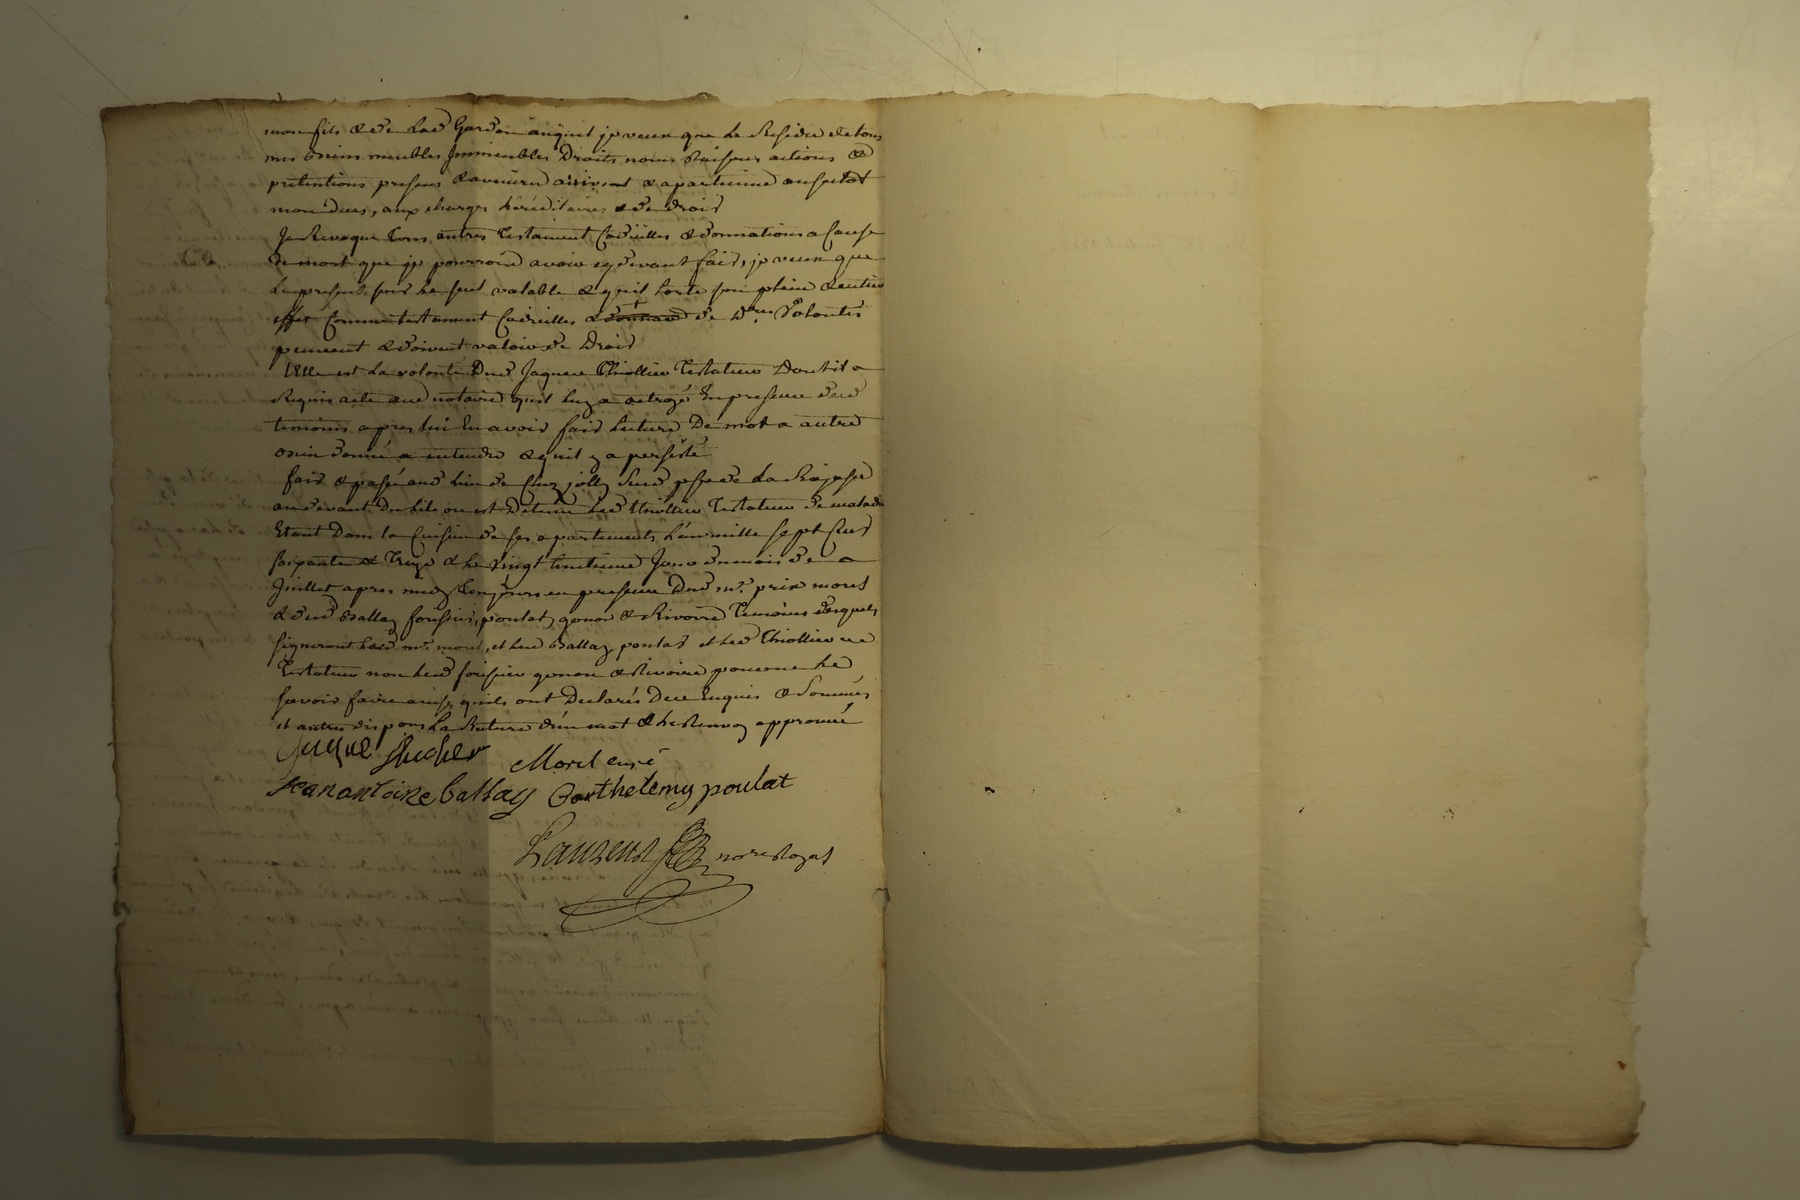 mon fils & de lad Gardon auquel je veux que le Residu de tous
mes biens meubles Immeubles Droits noms Raisons actions &
pretentions presens & avenir arrivent & apartienne aussitot
mon deces, aux charges héréditaires & de droit
Je Revoque Tous autres Testament Codicilles & donnations a Cause
de mort que je pourrois avoir cy devant fait, je veux que
le present soit le seul valable & quil sorte son plein & entier
effet Comme testament Codicilles & de Dres Volontés
peuvent & doivent valoir de Droit
Telle est la volonté Dud Jaques Thiollier Testateur Dont il a
Requis acte aud notaire quil luy a octroyé En presence desd
temoins apres lui En avoir fait lecture De mot a autre
bien donné a entendre & quil y a persisté
fait & passé aud lieu de chez jolly Susd psse de La
au devant Du lit ou est Detenu led Thiollier Testateur De maladie
Etant Dans la Cuisine de ses apartements l'an mille sept Cent
soixante & Treize & le vingt huitieme Jour du mois de
Juillet apres midy Toujours en presence Dud mr. prix morel
& desd Ballay forissier, poulat, gonon & Rivoire Temoins desquels
signeront led mr. morel, et led Ballay, poulat et led Thiollier
Testateur non led forissier gonon & Rivoire pour ne le
savoir faire ainsy quils ont Declarés De ce Enquis & Sommés
et autres dispons La Rature d'un mot & le Renvoy approuvé
Jaque thiolier Morel curé
Jean antoine ballay Barthelemy poulat
Laurenson nore Royal